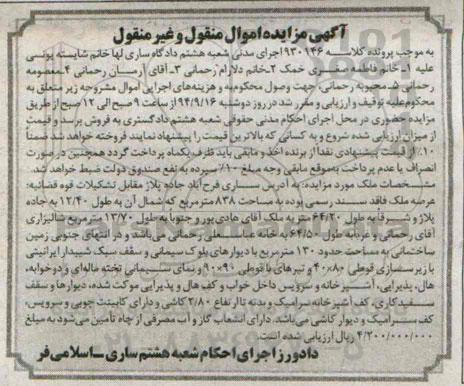 آگهی مزایده اموال منقول و غیر منقول
به موجب پرونده کلاسه ۹۳۰۱۴۶ اجرای مدنی شعبه هشتم دادگاه ساری لها خانم شایسته یونسی
علیه ۱ـ خانم فاطمه صفری خمک ۲ـ خانم دلارام رحمانی ۳ـ آقای آرسان رحمانی ۴ـ معصومه
رحمانی ۵ـ محبوبه رحمانی، جهت وصول محکوم‌به و هزینه‌های اجرایی اموال مشروحه زیر متعلق به
محکوم‌علیه توقیف و ارزیابی و مقرر شد در روز دوشنبه ۹۴/۹/۱۶ از ساعت ۹ صبح الی ۱۲ صبح از طریق
مزایده حضوری در محل اجرای احکام مدنی حقوقی شعبه هشتم دادگستری به فروش برسد و قیمت
از میزان ارزیابی شده شروع و به کسانی که بالاترین قیمت را پیشنهاد نمایند فروخته خواهد شد ضمناً
۱۰٪ از قیمت پیشنهادی نقداً از برنده اخذ و مابقی باید ظرف یکماه پرداخت گردد همچنین در صورت
انصراف یا عدم پرداخت به‌موقع مابقی وجه مبلغ ۱۰٪ سپرده به نفع صندوق دولت ضبط خواهد شد.
مشخصات ملک مورد مزایده: به آدرس ساری فرح آباد جاده پلاژ مقابل تشکیلات قوه قضائیه:
عرصه ملک فاقد سند رسمی بوده به مساحت ۸۳۸ مترمربع که شمال آن به طول ۱۲/۴۰ به جاده
پلاژ و شرقاً به طول ۶۴/۲۰ متر به ملک آقای هادی پور و جنوباً به طول ۱۳/۷۰ مترمربع شالیزاری
آقای رحمانی و غرباً به طول ۶۴/۵۰ به خانه عباسعلی رحمانی می‌باشد و در انتهای جنوبی زمین
ساختمانی به مساحت حدود ۱۳۰ مترمربع با دیوارهای بلوک سیمانی و سقف سبک شیبدار ایرانیتی
با زیرسازی قوطی ۸۰×۴۰ و تیرهای با قوطی ۹۰×۹۰ و نمای سیمانی تخته ماله‌ای و دوخوابه،
هال، پذیرایی، آشپزخانه و سرویس داخل خواب و کف هال و پذیرایی موکت شده، دیوارها و سقف
سفیدکاری، کف آشپزخانه سرامیک و بدنه تا ارتفاع ۲/۸۰ کاشی و دارای کابینت چوبی و سرویس،
کف سرامیک و دیوار کاشی می‌باشد. دارای انشعاب گاز و آب مصرفی از چاه تأمین می‌شود به مبلغ
۴/۲۰۰/۰۰۰/۰۰۰ ریال ارزیابی شده است.
دادورز اجرای احکام شعبه هشتم ساری ـ اسلامی فر